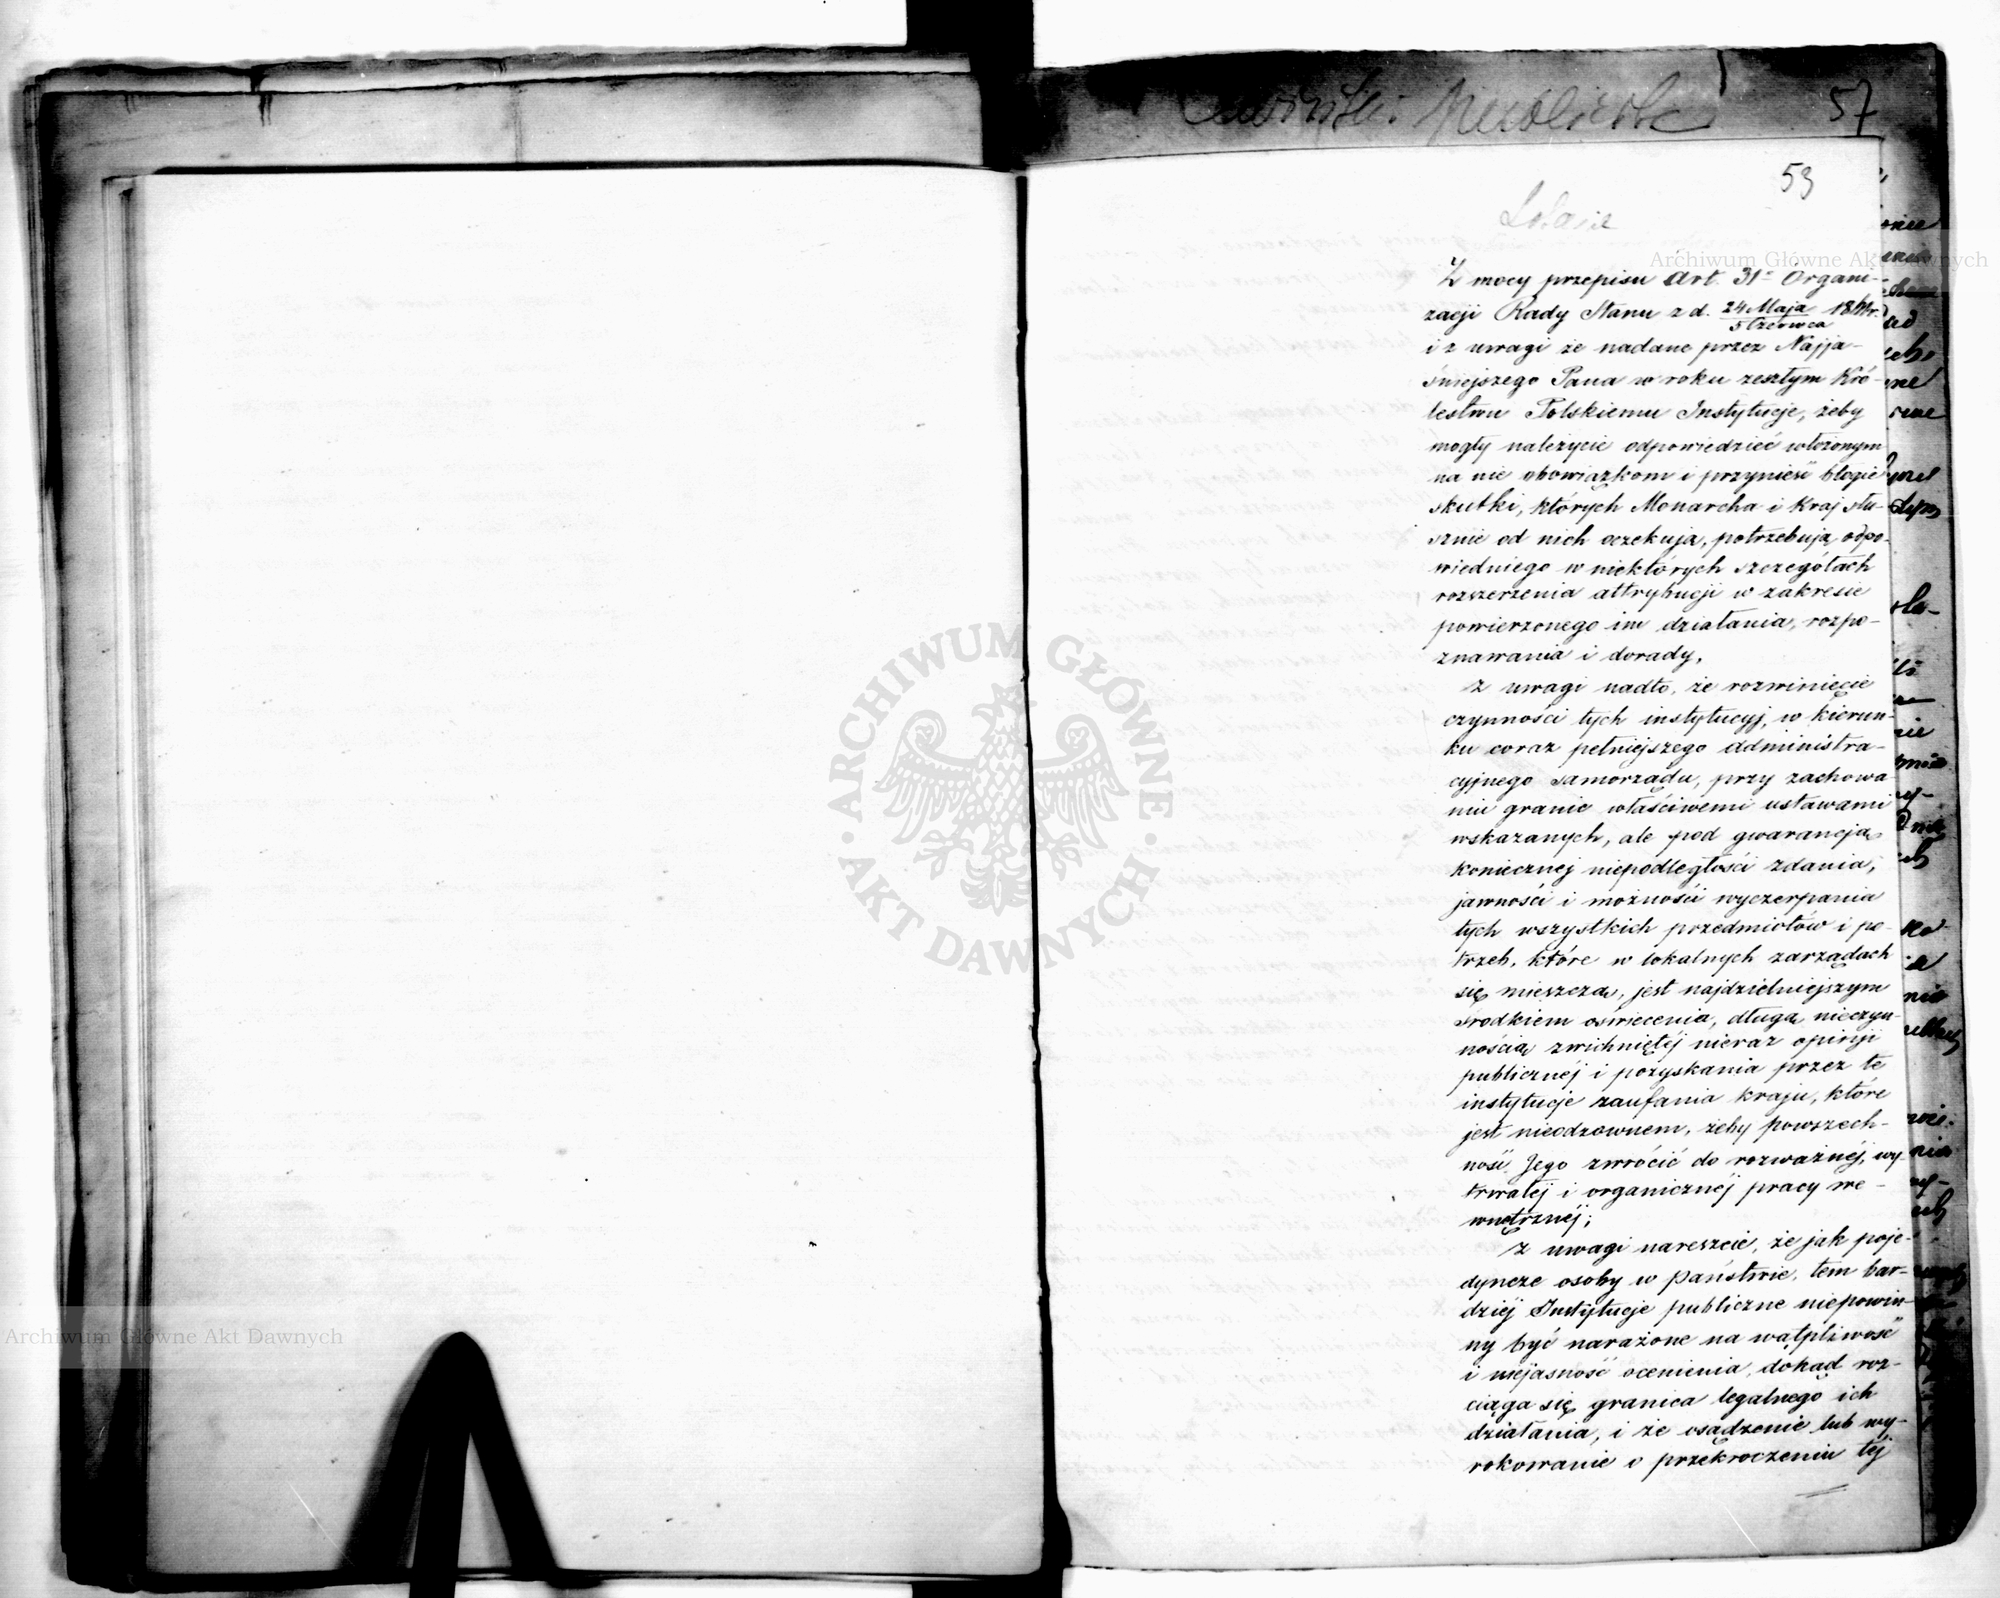 57
53
Z mocy przepisu Art. 31º Organi-
zacji Rady Stanu z d. 24 Maja / 5 Czerwca 18 r.
i z uwagi że nadane przez Najja-
śniejszego Pana w roku zeszłym Kró-
lestwu Polskiemu Instytucje, żeby
mogły należycie odpowiedzieć włożonym
na nie obowiązkom i przynieść błogie
skutki, których Monarcha i Kraj słu-
sznie od nich oczekują, potrzebują odpo-
wiedniego w niektórych szczegółach
rozszerzenia attrybucji w zakresie
powierzonego im działania, rozpo-
znawania i dorady,
Z uwagi nadto, że rozwinięcie
czynności tych instytucyj, w kierun-
ku coraz pełniejszego administra-
cyjnego samorządu, przy zachowa-
niu granic właściwemi ustawami
wskazanych, ale pod gwarancją
koniecznej niepodległości zdania,
jawności i możności wyczerpania
tych wszystkich przedmiotów i po-
trzeb, które w lokalnych zarządach
się mieszczą, jest najdzielniejszym
środkiem oświecenia, długą nieczyn-
nością zwichniętéj nieraz opinji
publicznéj i pozyskania przez te
instytucje zaufania kraju, które
jest nieodzownem, żeby powszech-
ność Jego zwrócić do rozważnéj, wy
trwałéj i organicznéj pracy we-
wnętrznéj;
Z uwagi nareszcie, że jak poje-
dyncze osoby w państwie, tem bar-
dziéj Instytucje publiczne niepowin-
ny być narażone na wątpliwość
i niejasność ocenienia, dokąd roz-
ciąga się granica legalnego ich
działania, i że osądzenie lub wy-
rokowanie o przekroczeniu téj
Archiwum Główne Akt Dawnych
ARCHIWUM GŁÓWNE · AKT DAWNYCH ·
Archiwum Główne Akt Dawnych